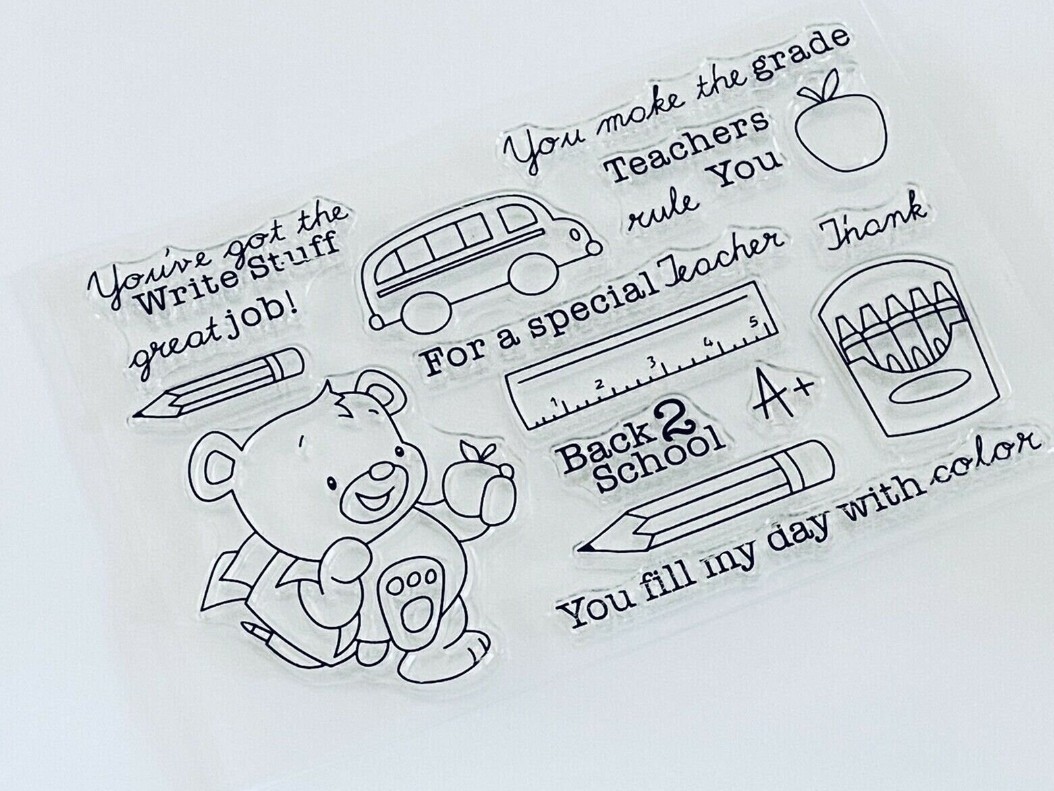 You make the grade
Teachers
rule You
Thank
You've got the
Write Stuff
great job!
For a special Teacher
1 2 3 4 5
A+
Back 2
School
You fill my day with color